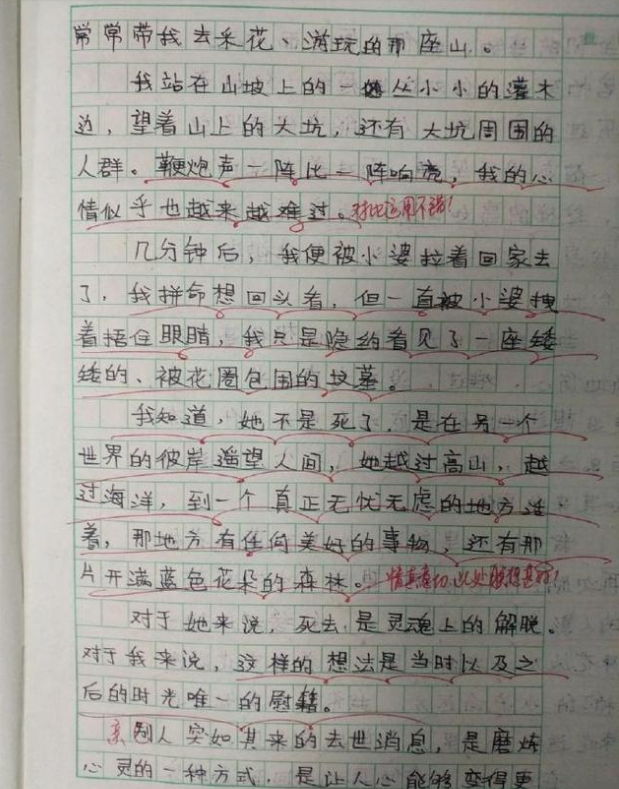 常常带我去采花、游玩的那座山。
我站在山坡上的一丛小小的灌木
边，望着山上的大坑，还有大坑周围的
人群。鞭炮声一阵比一阵响亮，我的心
情似乎也越来越难过。对比运用不错！
几分钟后，我便被小婆拉着回家去
了，我拼命想回头看，但一直被小婆拽
着捂住眼睛，我只是隐约看见了一座矮
矮的、被花圈包围的坟墓。
我知道，她不是死了，是在另一个
世界的彼岸遥望人间，她越过高山，越
过海洋，到一个真正无忧无虑的地方活
着，那地方有任何美好的事物，还有那
片开满蓝色花朵的森林。情真意切，此处联想甚好！
对于她来说，死去是灵魂上的解脱。
对于我来说，这样的想法是当时以及之
后的时光唯一的慰籍。
亲人突如其来的去世消息，是磨炼
心灵的一种方式，是让人心能够变得更